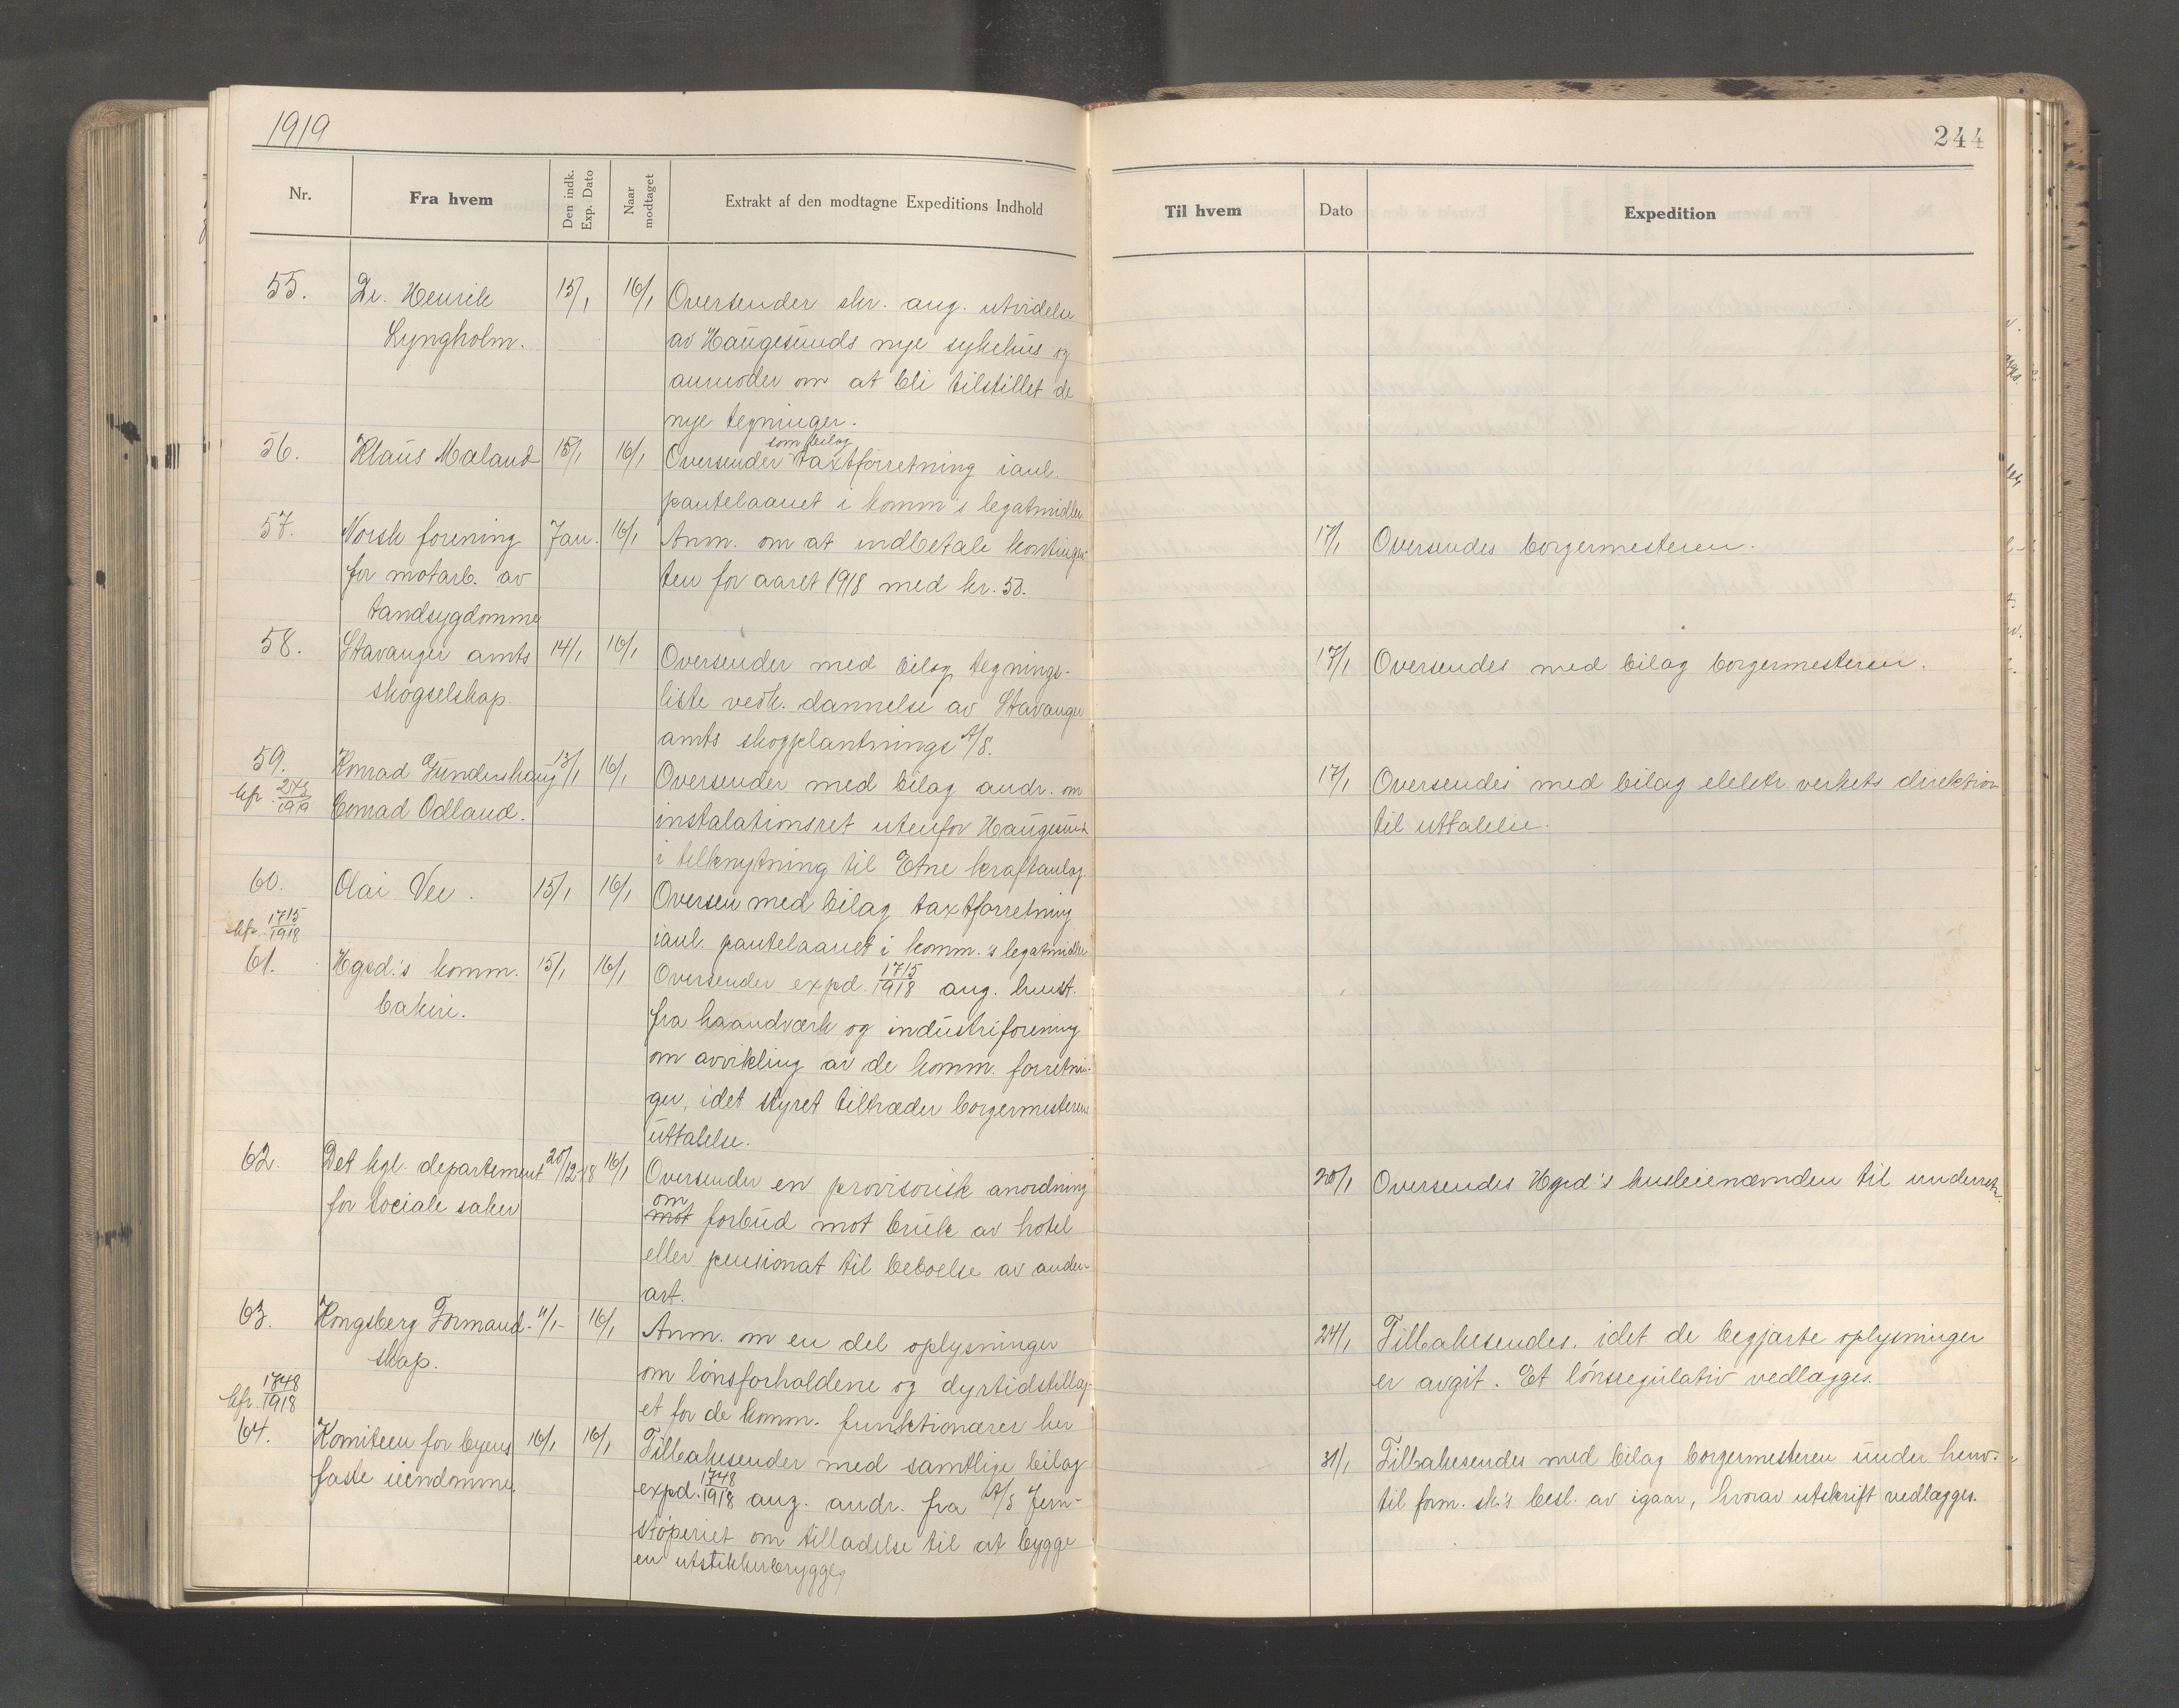 1919
244
Nr.
Fra hvem
Den indk. Exp. Dato
Naar modtaget
Extrakt af den modtagne Expeditions Indhold
Til hvem
Dato
Expedition
55. Dr. Henrik 15/1 16/1 Oversender skr. ang. utvidelse
Lyngholm. av Haugesunds nye sykehus og
anmoder om at bli tilstillet de
nye tegninger.
som bilag
56. Klaus Maland 15/1 16/1 Oversender taxtforretning i anl.
pantelaanet i komm's legatmidler
57. Norsk forening Jan. 16/1 Anm. om at indbetale kontingen- 17/1 Oversendes borgermesteren.
for motarb. av ten for aaret 1918 med kr. 50.
tandsygdomme
58. Stavanger amts 14/1 16/1 Oversender med bilag tegnings- 17/1 Oversendes med bilag borgermesteren.
skogselskap. liste vedk. dannelse av Stavanger
amts skogplantnings A/S.
59. Konrad Gundershaug 13/1 16/1 Oversender med bilag andr. om 17/1 Oversendes med bilag elektr verkets direktion
kfr. 273/1919 Conrad Odland. instalationsret utenfor Haugesund til uttalelse.
i tilknytning til Etne kraftanlæg.
60. Olai Vee. 15/1 16/1 Oversen med bilag taxtforretning
kfr. 1715/1918 i anl. pantelaanet i komm.'s legatmidler
61. Hgsd.'s komm. 15/1 16/1 Oversender expd. 1715/1918 ang. henst.
bakeri. fra haandværk og industriforening
om avvikling av de komm. forretnin-
ger, idet styret tiltræder borgermesterens
uttalelse.
62. Det kgl. departement 20/12-18 16/1 Oversender en provisorisk anordning 20/1 Oversendes Hgsd's husleienævnden til underretn.
for sociale saker om
mot forbud mot bruk av hotel
eller pensionat til beboelse av anden
art.
63. Kongsberg Formand- 11/1- 16/1 Anm. om en del oplysninger 24/1 Tilbakesendes, idet de begjærte oplysninger
skap. om lønsforholdene og dyrtidstillæg- er avgit. Et lønsregulativ vedlægges.
kfr. 1748/1918 et for de komm. funktionærer her
64. Komiteen for byens 16/1 16/1 Tilbakesender med samtlige bilag 31/1 Tilbakesendes med bilag borgermesteren under henv.
faste eiendomme expd. 1748/1918 ang. andr. fra A/S Jern- til form. sk's besl. av igaar, hvorav utskrift vedlægges.
støperiet om tilladelse til at bygge
en utstikkerbrygge